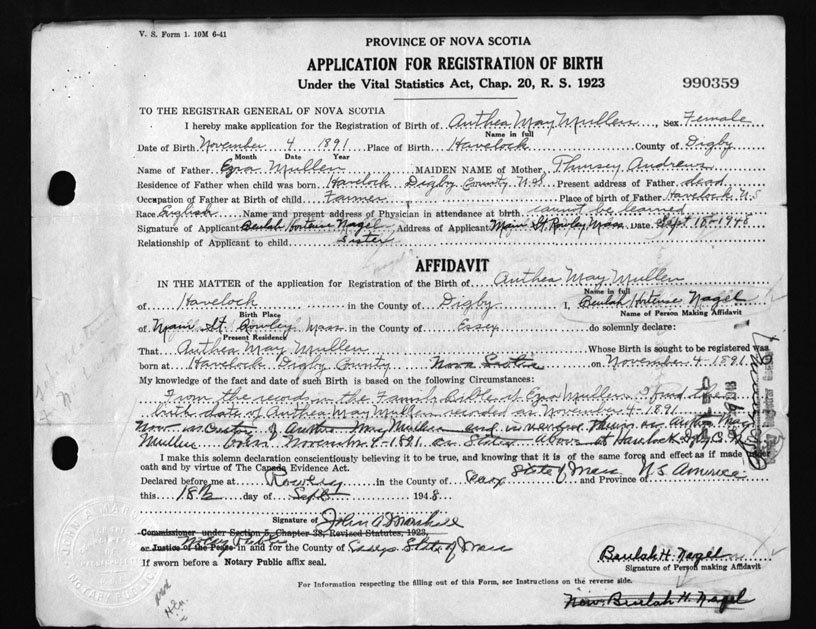 V. S. Form 1. 10M 6-41
PROVINCE OF NOVA SCOTIA
APPLICATION FOR REGISTRATION OF BIRTH
Under the Vital Statistics Act, Chap. 20, R. S. 1923
990359
TO THE REGISTRAR GENERAL OF NOVA SCOTIA
I hereby make application for the Registration of Birth of Anthea May Mullen, Sex Female
Name in full
Date of Birth November 4 1891 Place of Birth Havelock County of Digby
Month Date Year
Name of Father Ezra Mullen MAIDEN NAME of Mother, Andrews
Residence of Father when child was born Havelock Digby County N.S. Present address of Father dead
Occupation of Father at Birth of child Farmer Place of birth of Father Havelock N.S
Race English Name and present address of Physician in attendance at birth cannot be learned
Signature of Applicant Beulah Nagel Address of Applicant Main St. Rowley Mass Date Sept 18-1948
Relationship of Applicant to child Sister
AFFIDAVIT
IN THE MATTER of the application for Registration of the Birth of Anthea May Mullen
Name in full
of Havelock in the County of Digby I, Beulah Hortense Nagel
Birth Place Name of Person Making Affidavit
of Main St. Rowley Mass in the County of Essex do solemnly declare:
Present Residence
That Anthea May Mullen Whose Birth is sought to be registered was
born at Havelock Digby County Nova Scotia on November 4-1891
My knowledge of the fact and date of such Birth is based on the following Circumstances:
From the record in the Family Bible of Ezra Mullen I find the
birth date of Anthea May Mullen recorded as November 4-1891
Mullen born November 4-1891 as Stated Above at Havelock
I make this solemn declaration conscientiously believing it to be true, and knowing that it is of the same force and effect as if made under
oath and by virtue of The Canada Evidence Act.
Declared before me at Rowley in the County of Essex State of Mass and Province of U.S. America
this 18th day of Sept 1948
Signature of John A Marshall
Commissioner under Section 5, Chapter 38, Revised Statutes, 1923,
Notary Public
or Justice of the Peace in and for the County of Essex State of Mass
If sworn before a Notary Public affix seal.
Beulah H. Nagel
Signature of Person making Affidavit
For Information respecting the filling out of this Form, see Instructions on the reverse side.
Beulah H. Nagel
NOTARY PUBLIC